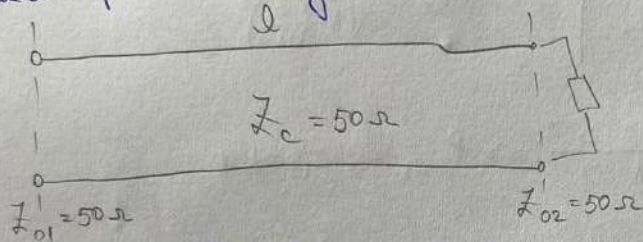 l
Z_c = 50 Ω
Z_01 = 50 Ω
Z_02 = 50 Ω